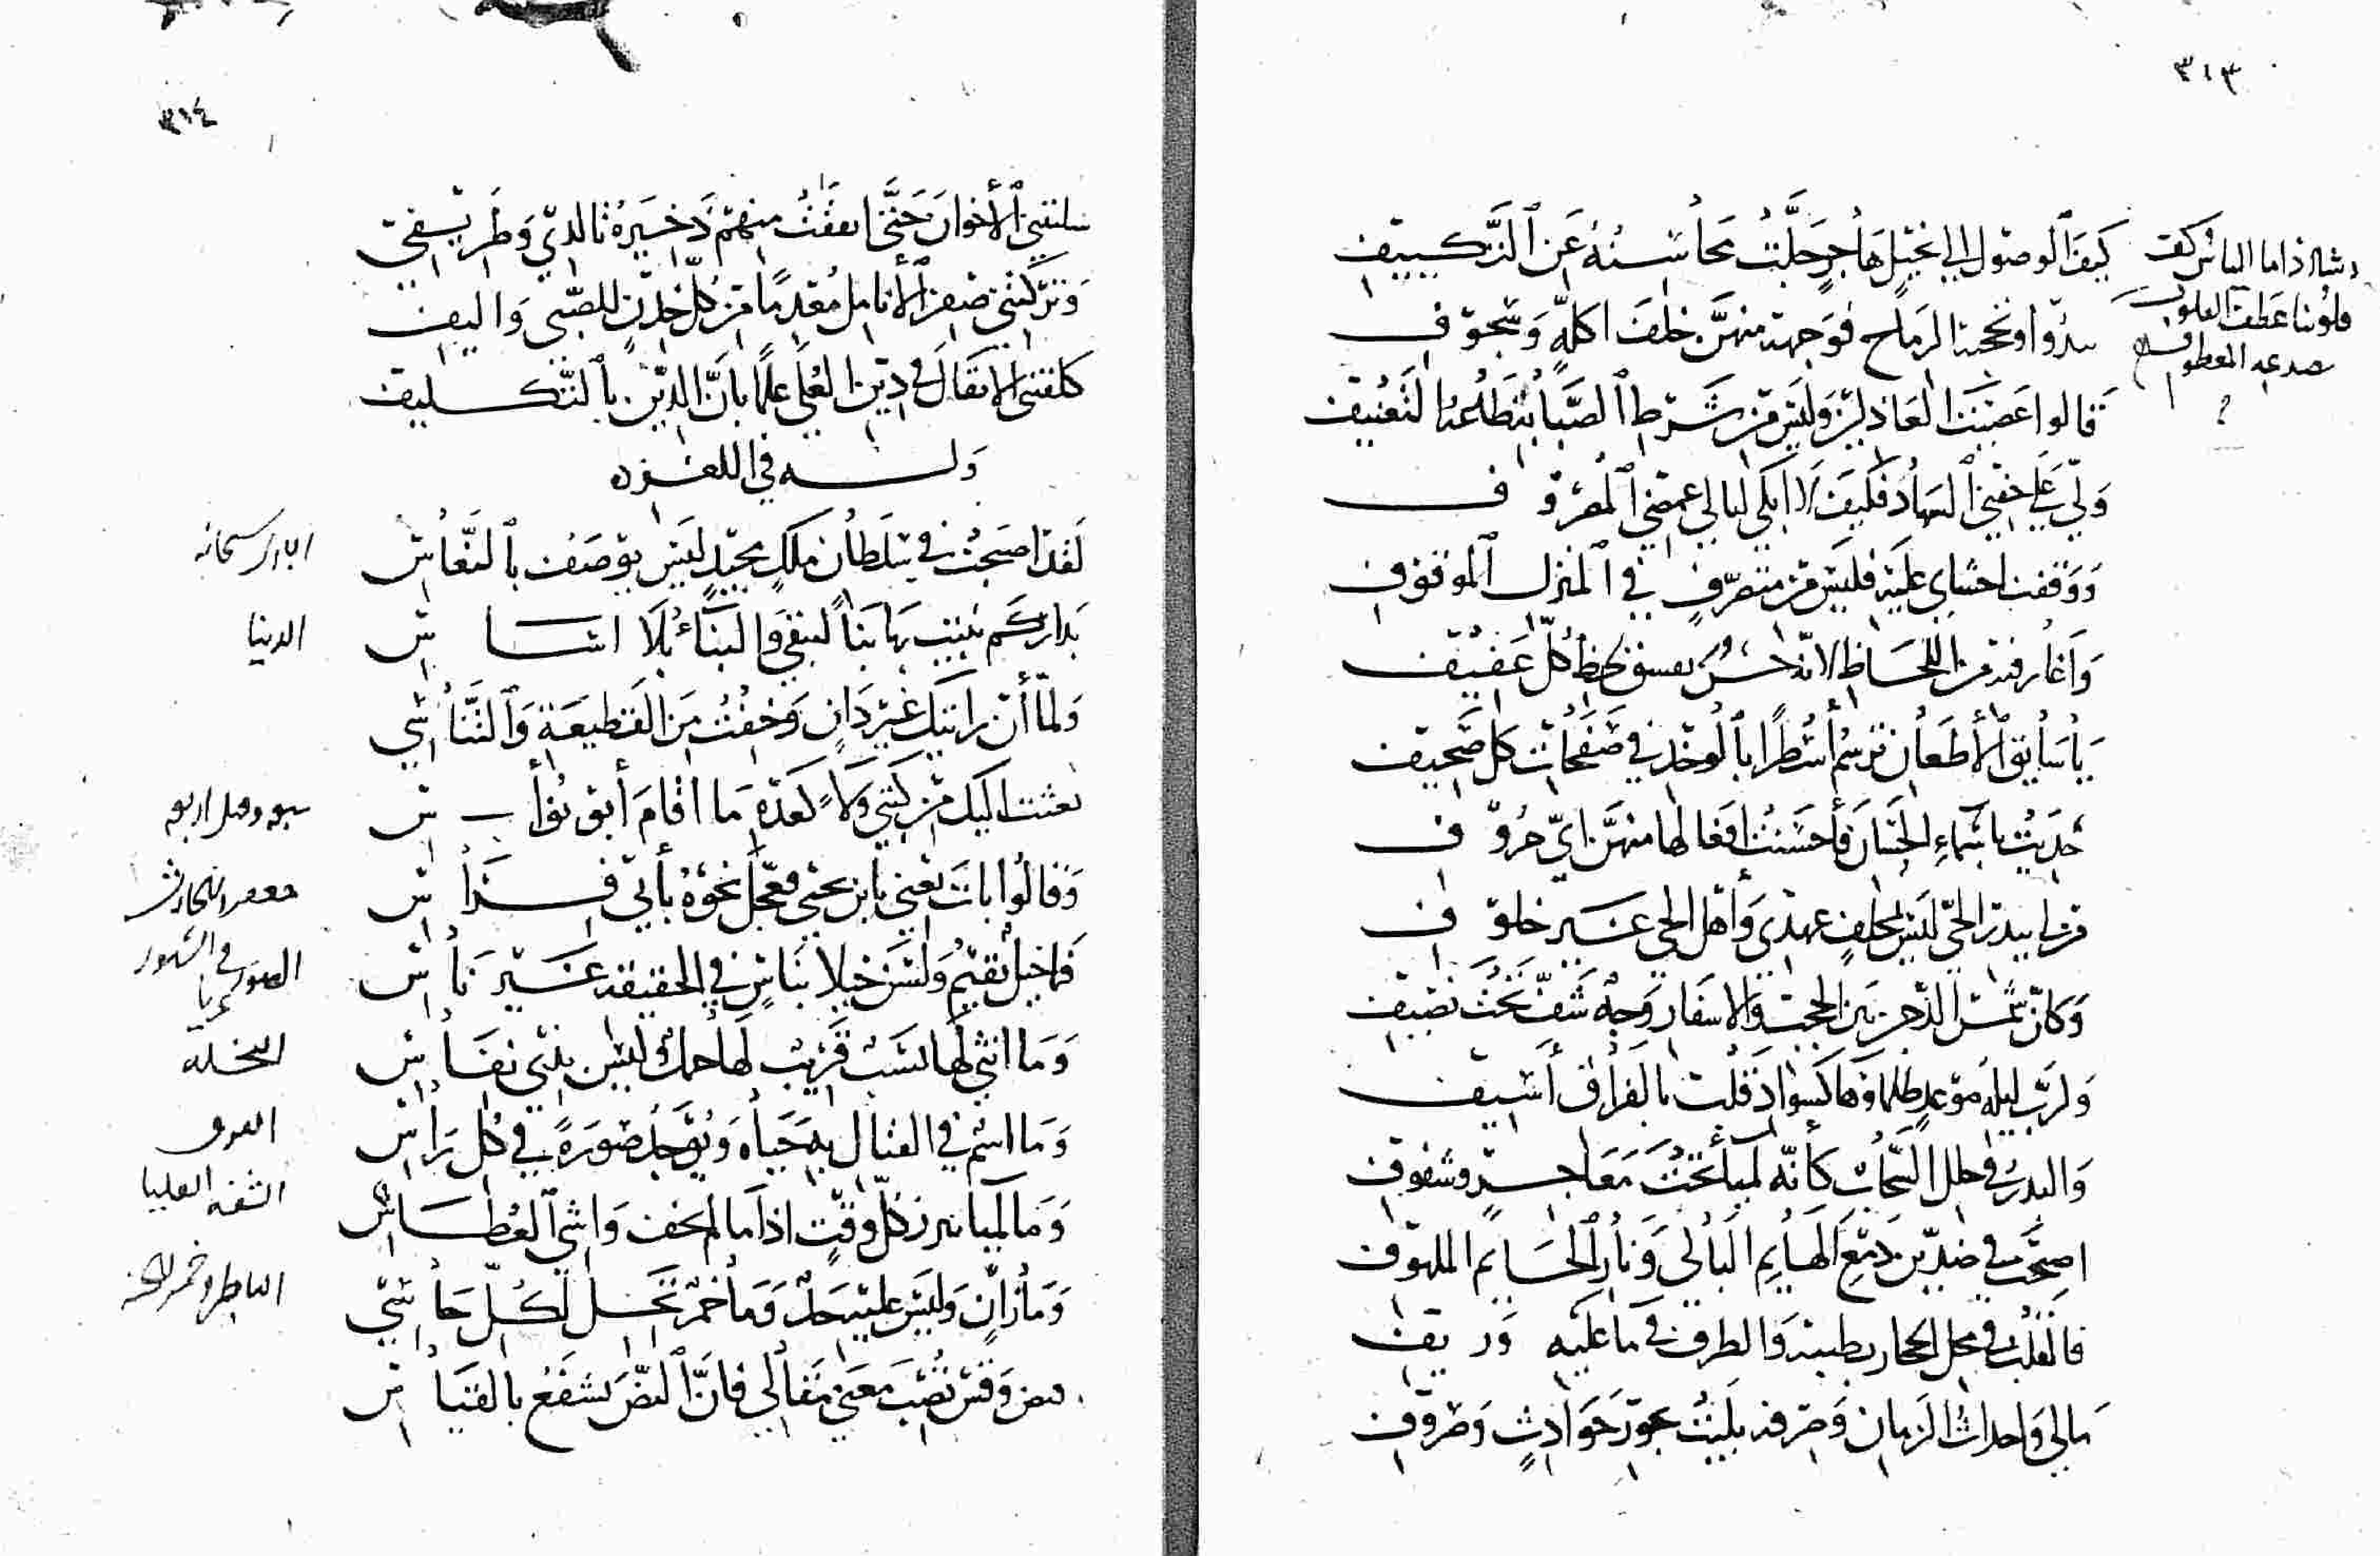 ٣١٣
كَيفَ الوصول الى تخيل هاجرٍ جلَّت محاسنه عن التكييف
شاذا ما الياس كف
قلوبنا عطف القلوب
صدغه المعطوف
سدوا وتحجبنا الرماح فوجهه منهن خلف اكلة وسجوف
قالوا عصيت العاذلين وليس من شرط الصبا بتطلع التعنيف
ولي على جفني السهاد فكيف لا ابكي ليالي غمضي المصروف
ووقفت احشاي عليه فليس من متصرف في المنزل الموقوف
واغار فيه من اللحاظ لانه حسن يفسق لحظ كل عفيف
يا سايق الاظعان ترسم اسطرا بالوخد في صفحات كل صحيف
حديت باسماء الحسان فاحسنت افعالها منهن اي حروف
قف لي ببدر الحي ليس بمخلف عهدي واهل الحي غير خلوف
وكان شمس الدهر بين الحجب والاسفار وجه شف تحت نصيف
ولرب ليلة موعد ظلماوها كسواد قلت بالفراق اسيف
والبدر في حلل السحاب كانه لمياء تحت معاجر وشفوف
اصبحت في ضدين دمع الهايم البالي ونار الحايم الملهوف
فالقلب في محل الحجاز بطيبه والطرف في ما عليه وريف
مالي واحداث الزمان وصرفه بليت بجور حوادث وصروف
٣١٤
سلبتني الاخوان حتى انفقت منهم ذخيرة تالدي وطريفي
وتركتني صفر الانامل معدما من كل خدن للصبى واليف
كلفتني الاثقال في دين العلى علما بان الدين بالتكليف
وله في اللغز
لقد اصبحت في سلطان ملك مجيد ليس يوصف بالنعاس
الباري سبحانه
بداركم بنيت بها بناً لتبقى والبناء بلا اساس
الدنيا
ولما أن رايتك غير دان وخفت من القطيعة والتناسي
بعثت اليك من كتبي ولاً كعدة ما اقام أبو نواس
وقالوا بات يعني بابن يحيى فعجل نحوه بأبي فراس
فما خيل تقيم ولسن خيلا بناس في الحقيقة غير ناس
وما انثى لها نسب قريب لها حمل ليس بذي نفاس
النخلة
وما اسم في القتال به حياه وتوجد صورة في كل راس
العرف
وما لميا تبرز كل وقت اذا ما لم تخف واشي العطاس
الشفه العليا
وما زان وليس عليه حد وما خمر تحل لكل حاسي
وقس تصب معنى مقالي فان النص يشفع بالقياس